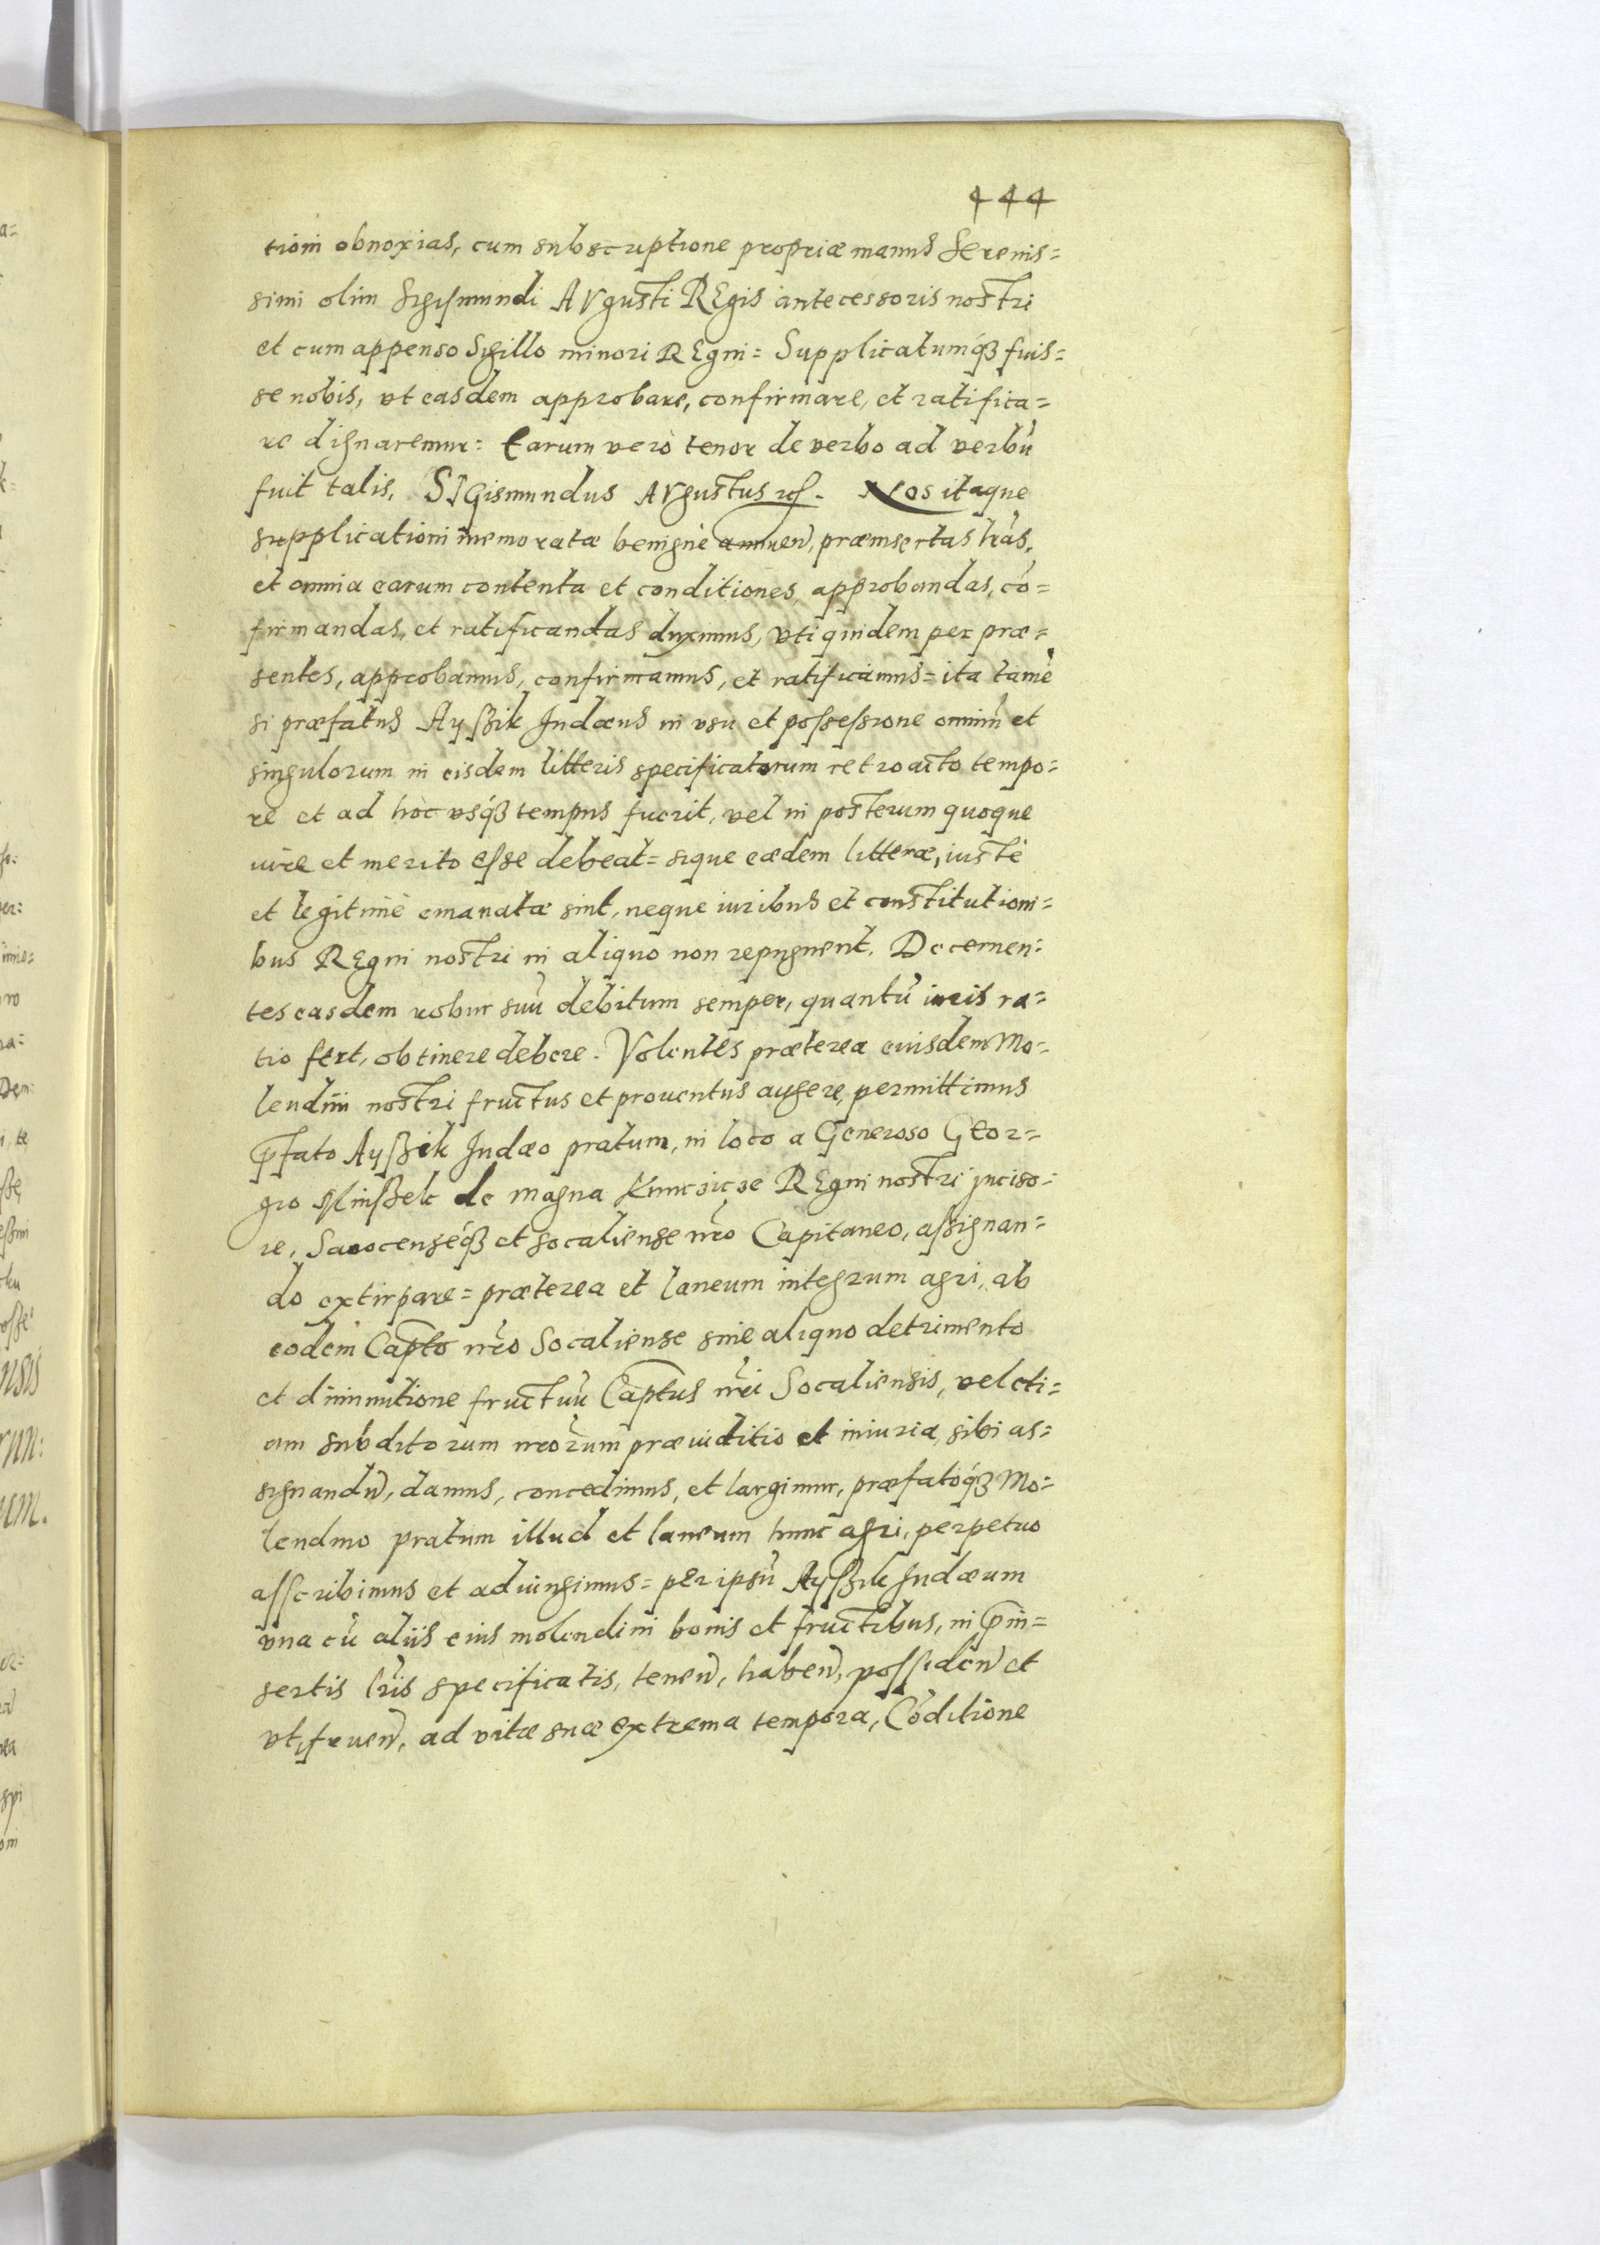 444
tioni obnoxias, cum subscriptione propriæ manus Serenis=
simi olim Sigismundi AVgusti REgis antecessoris nostri
et cum appenso Sigillo minori REgni= Supplicatumqʒ fuis=
se nobis, vt easdem approbare, confirmare, et ratifica=
re dignaremur: Earum vero tenor de verbo ad verbũ
fuit talis, SIGismundus AVgustus etc. Nos itaque
supplicationi memoratæ benignè annuen̄, præinsertas lr̃as,
et omnia earum contenta et conditiones, approbandas, cõ=
firmandas, et ratificandas duximus, vti quidem per præ=
sentes, approbamus, confirmamus, et ratificamus= ita tamẽ
si præfatus Ayßik Iudæus in vsu et possessione omniũ et
singulorum in eisdem litteris specificatorum retroacto tempo=
re et ad hoc vsqʒ tempus fuerit, vel in posterum quoque
iure et merito esse debeat= sique eædem litteræ, iustè
et legitimè emanatæ sint, neque iuribus et constitutioni=
bus REgni nostri in aliquo non repugnent. Decernen=
tes easdem robur suũ debitum semper, quantũ iuris ra=
tio fert, obtinere debere. Volentes præterea eiusdem Mo=
lendini nostri fructus et prouentus augere, permittimus
p̄fato Ayßik Iudæo pratum, in loco a Generoso Geor=
gio de Magna REgni nostri Inciso=
re, Sanocenseqʒ et Socaliense nr̃o Capitaneo, assignan=
do extirpare= præterea et laneum integrum agri, ab
eodem Capto nr̃o Socaliense sine aliquo detrimento
et diminutione fructuũ Captus nr̃i Socaliensis, vel eti=
am subditorum nr̃orum præiuditio et iniuria, sibi as=
signandũ, damus, concedimus, et largimur, præfatoqʒ Mo=
lendino pratum illud et laneum hunc agri, perpetuo
asscribimus et adiungimus= per ipsũ Ayßik Iudæum
vna cũ aliis eius molendini bonis et fructibus, in p̄in=
sertis lr̃is specificatis, tenen̄, haben̄, possiden̄ et
vtifruen̄, ad vitæ suæ extrema tempora, Cõditione